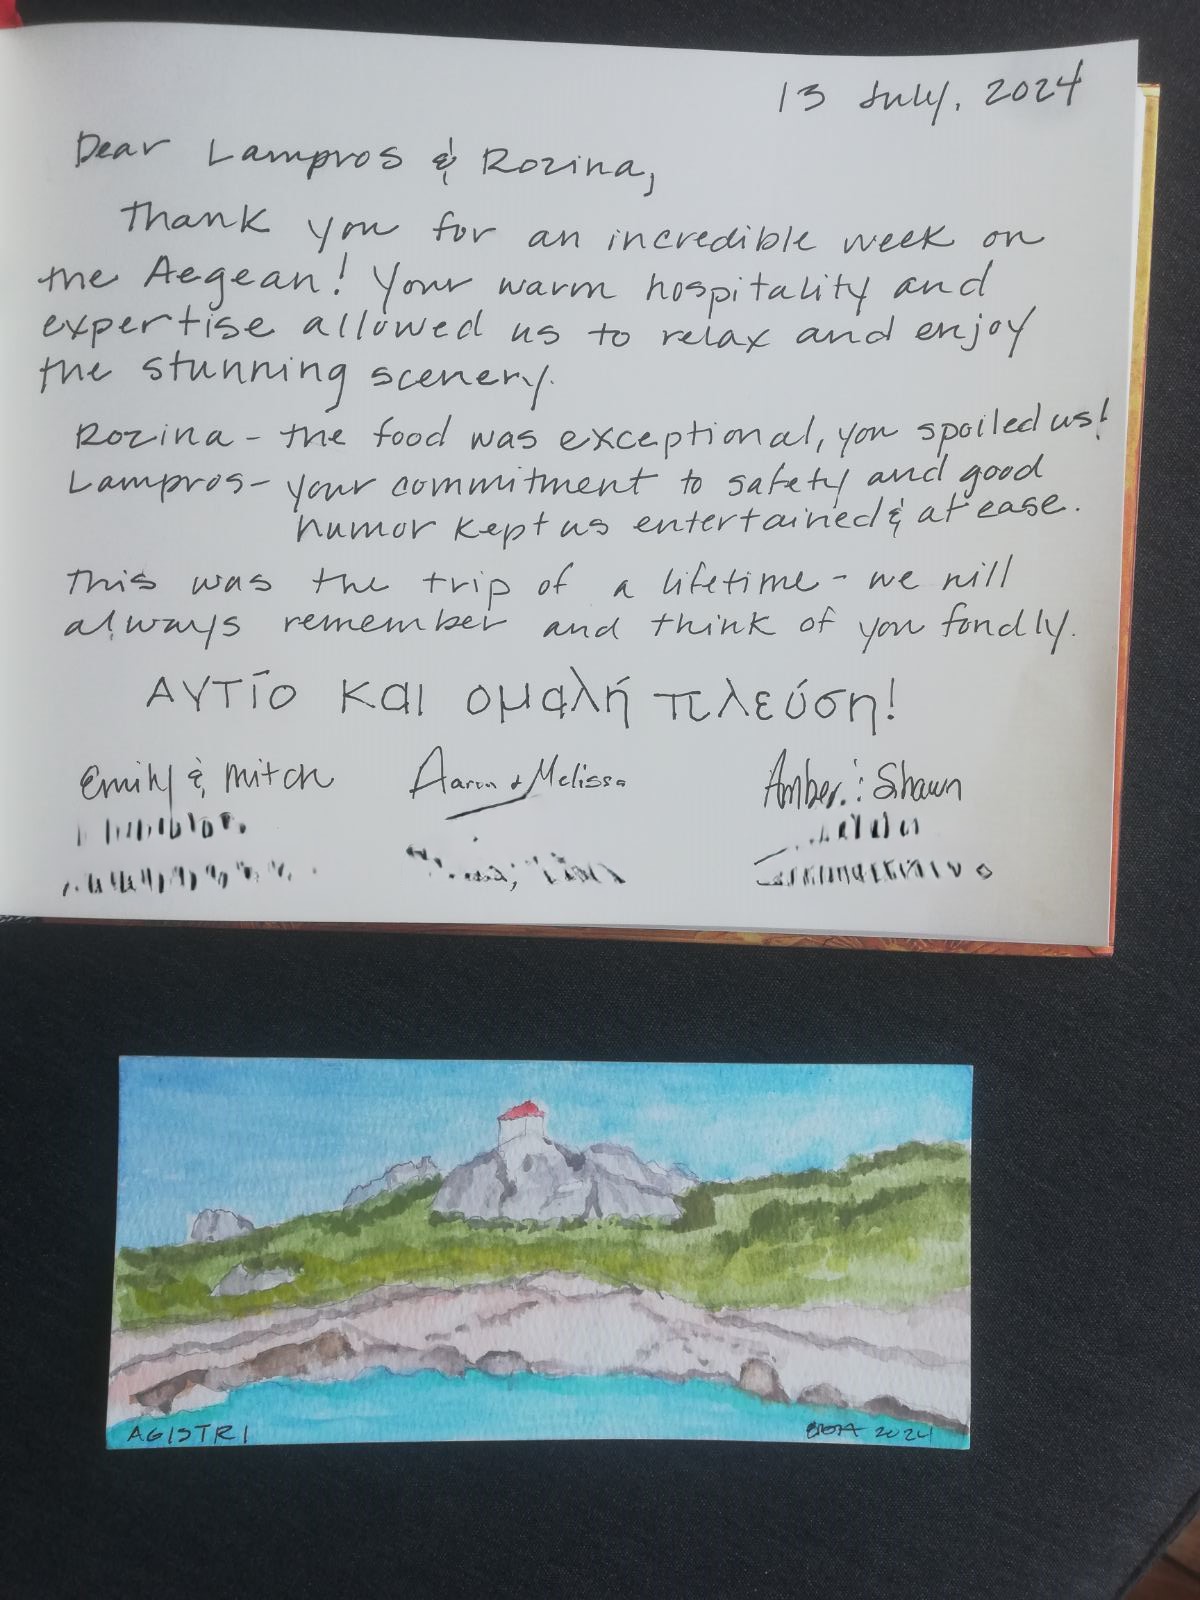 13 July, 2024
Dear Lampros & Rozina,
Thank you for an incredible week on
the Aegean! Your warm hospitality and
expertise allowed us to relax and enjoy
the stunning scenery.
Rozina - the food was exceptional, you spoiled us!
Lampros - your commitment to safety and good
humor kept us entertained & at ease.
This was the trip of a lifetime - we will
always remember and think of you fondly.
Αντίο και ομαλή πλεύση!
Emily & Mitch Aaron & Melissa Amber & Shawn
AGISTRI 2024